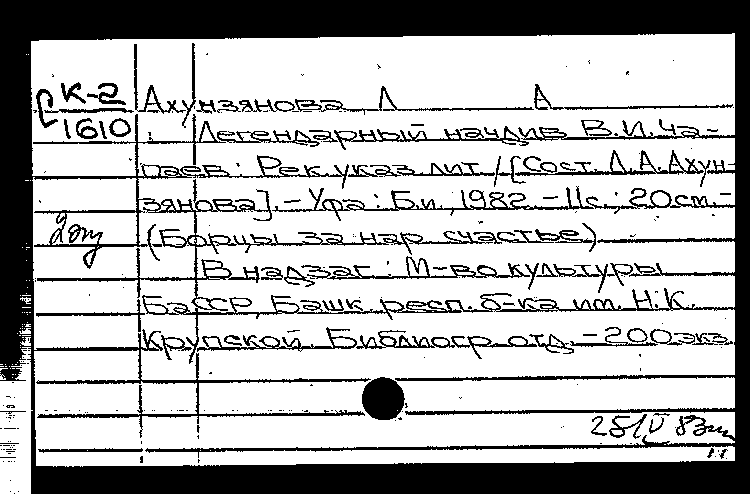 К-2 Ахунзянова Л А
1610 Легендарный начдив В.И. Ча-
паев: Рек указ лит / [Сост. Л.А. Ахун-
зянова]. – Уфа: Б.и., 1982. – 11с.; 20см. –
(Борцы за нар счастье)
В надзаг.: М-во культуры
БаССР, Башк. респ. б-ка им. Н.К.
Крупской. Библиогр. отд. – 200экз.